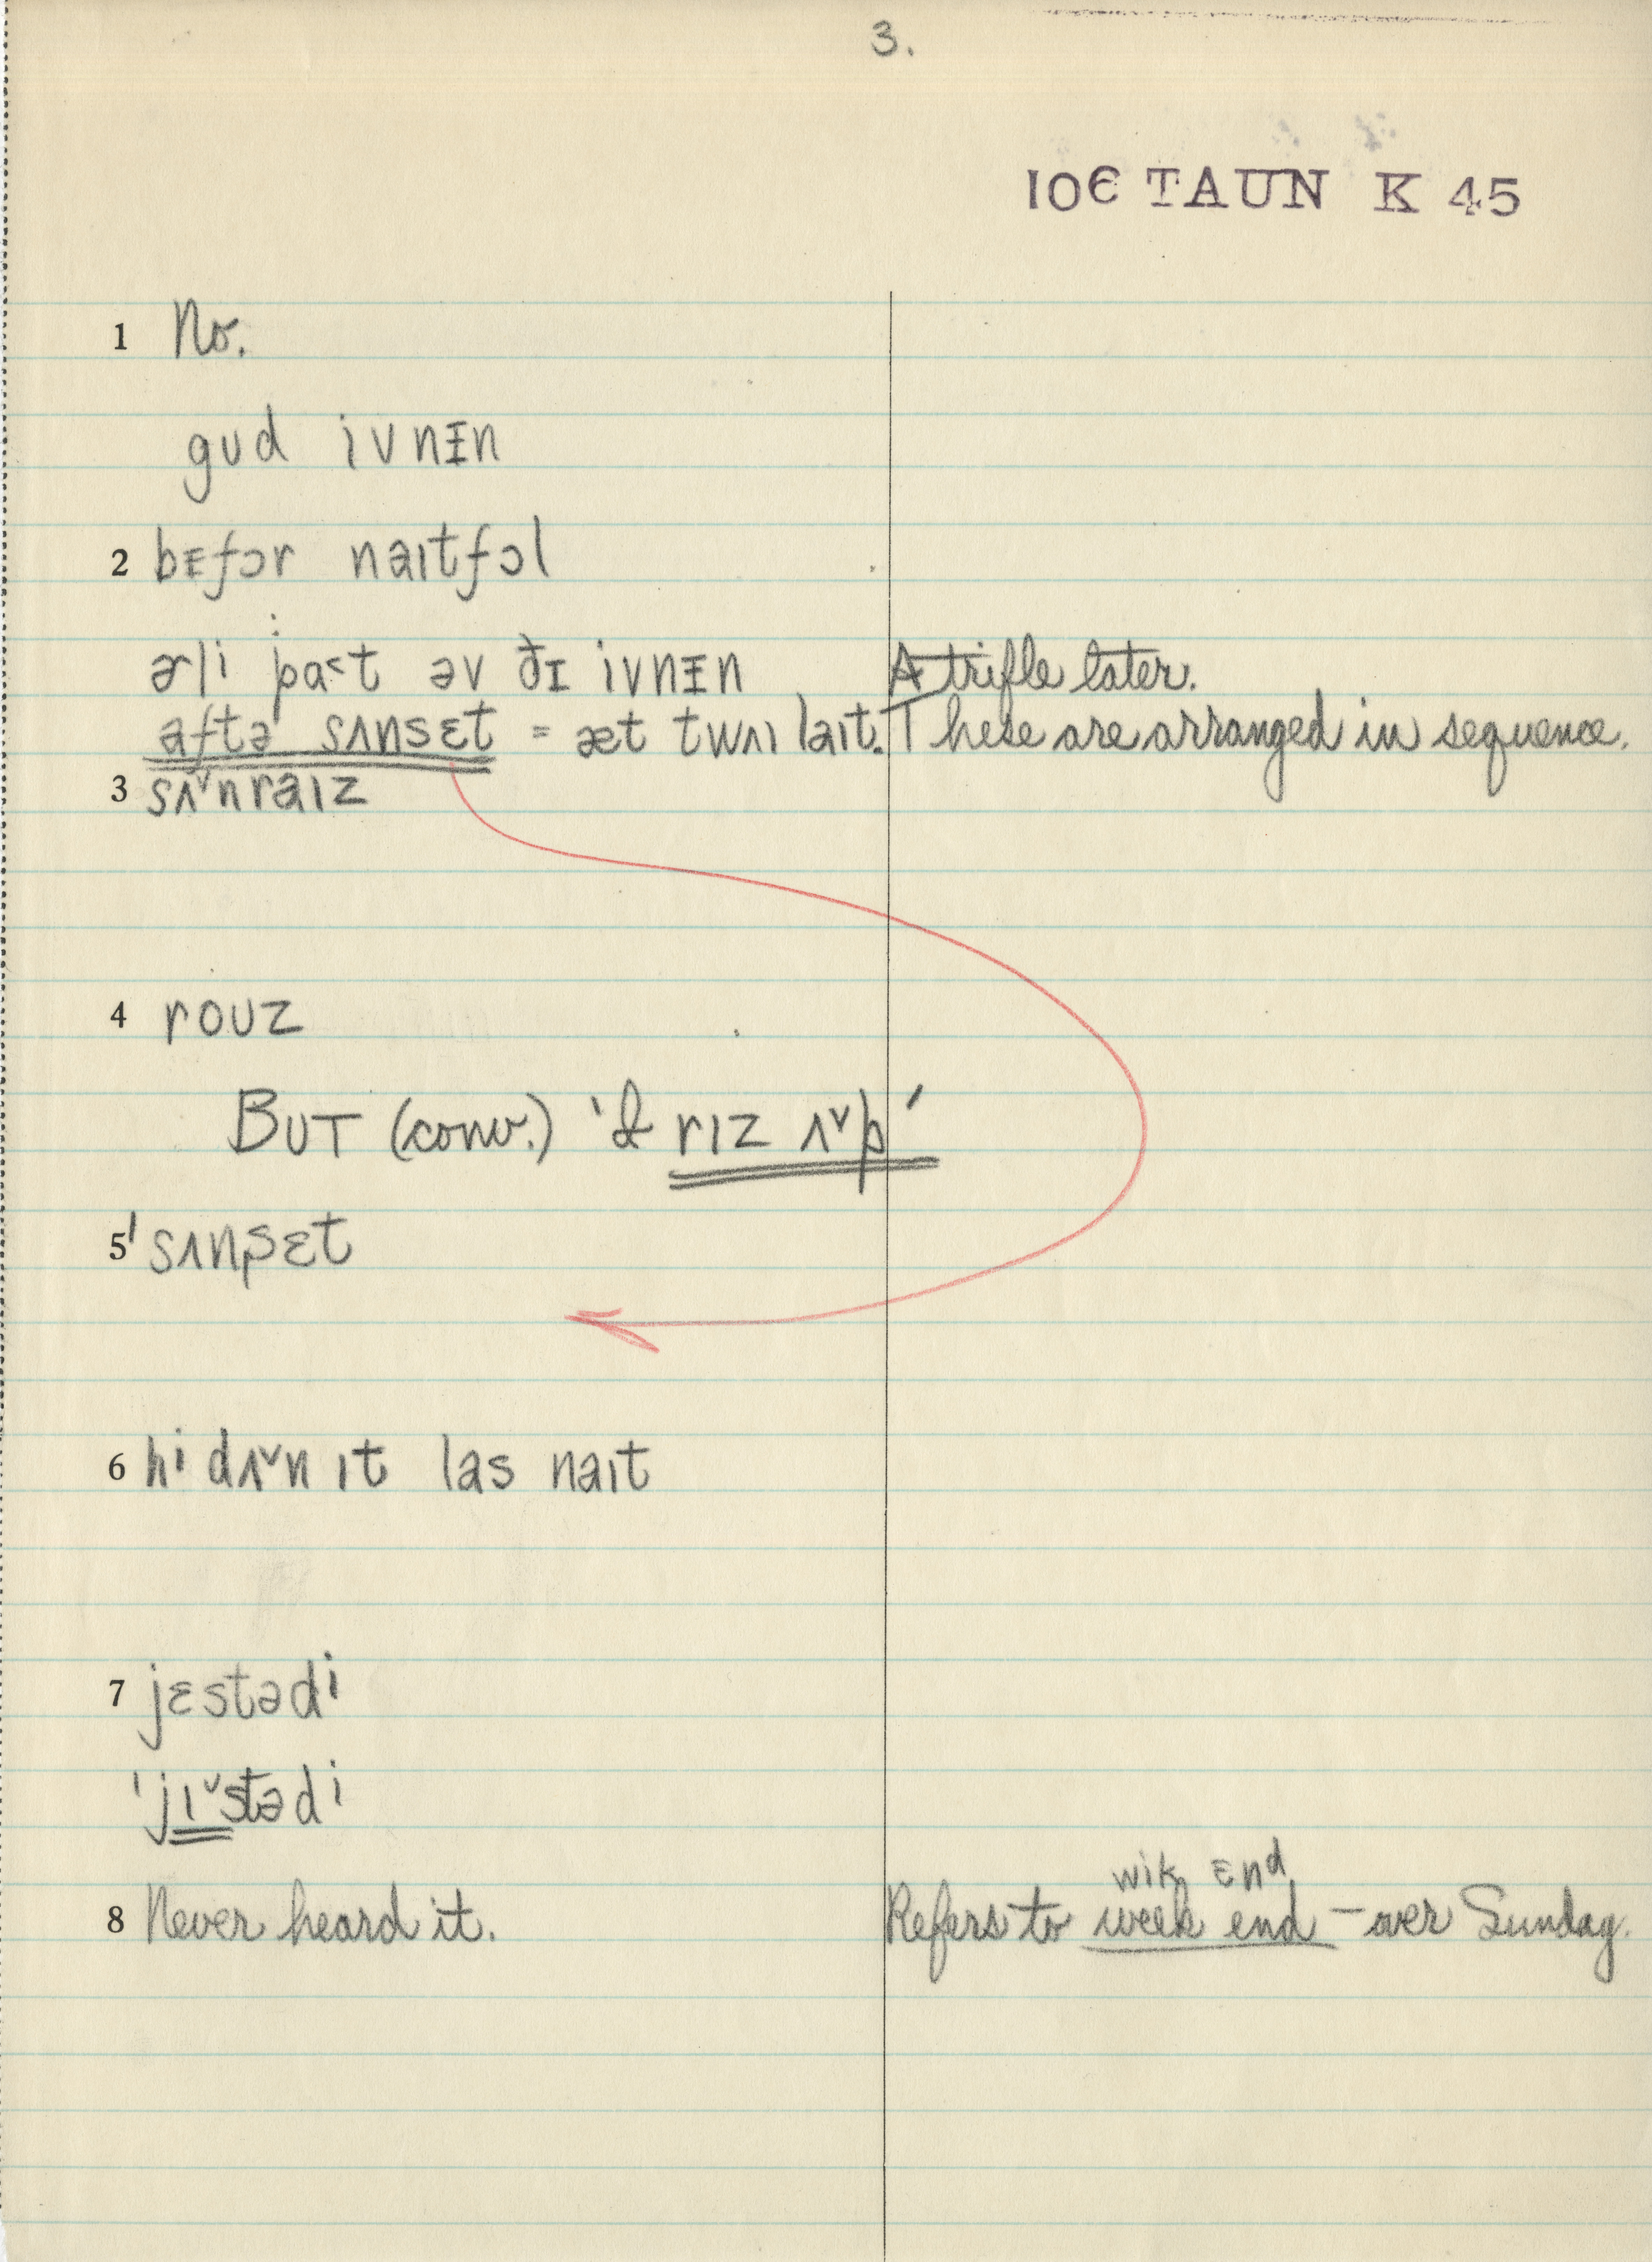 3.
10E TAUN K 45
1 No.
gud ivnᵻn
2 bᵻfɔr naɪtfɔl
ərli pa˂t əv ðɪ ivnᵻn A trifle later.
aftə sʌnsɛt = æt twaɪlaɪt. These are arranged in sequence.
3 sʌ˅nraɪz
4 rouz
BUT (conv.) 'I rɪz ʌ˅p'
5 'sʌnsɛt
6 hi dʌ˅n ɪt las naɪt
7 jɛstədi
'jɪ˅stədi
wik ɛnd
8 Never heard it. Refers to week end – over Sunday.